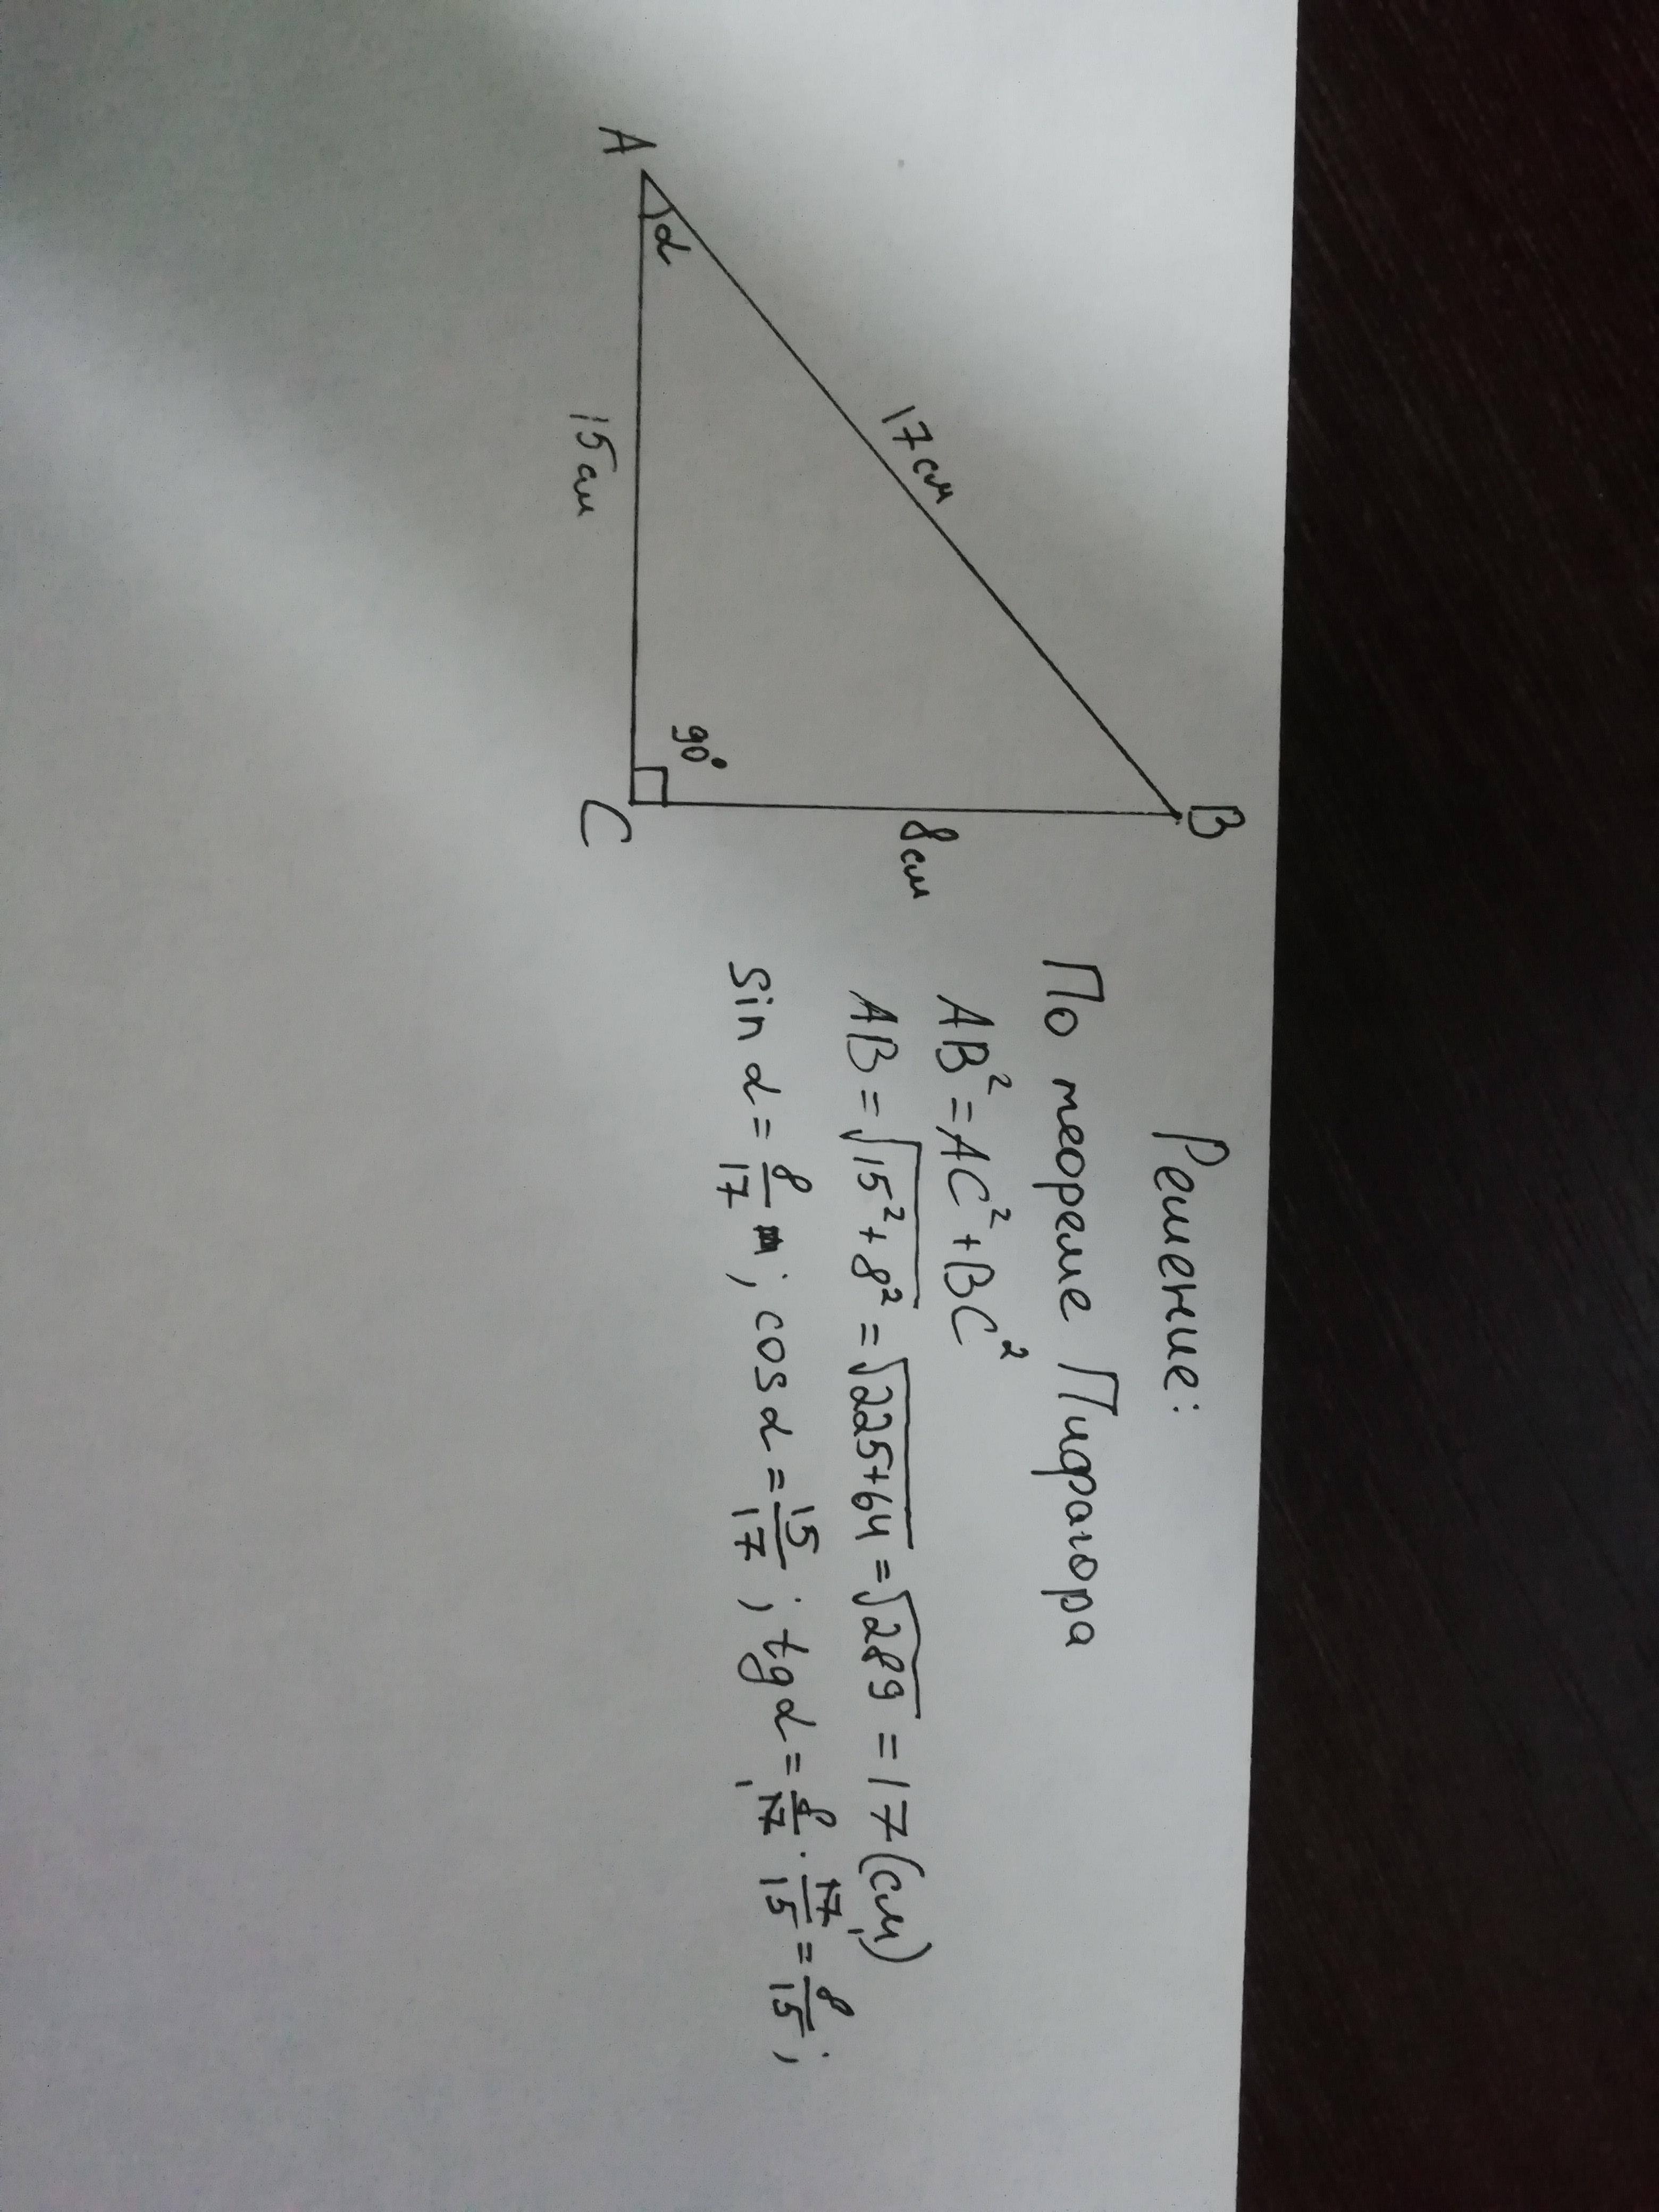 B
17 см
8 см
α
90°
A
15 см
C
Решение:
По теореме Пифагора
AB² = AC² + BC²
AB = √15² + 8² = √225+64 = √289 = 17 (см)
sin α = 8/17 ; cos α = 15/17 ; tg α = 8/17 · 17/15 = 8/15 ;